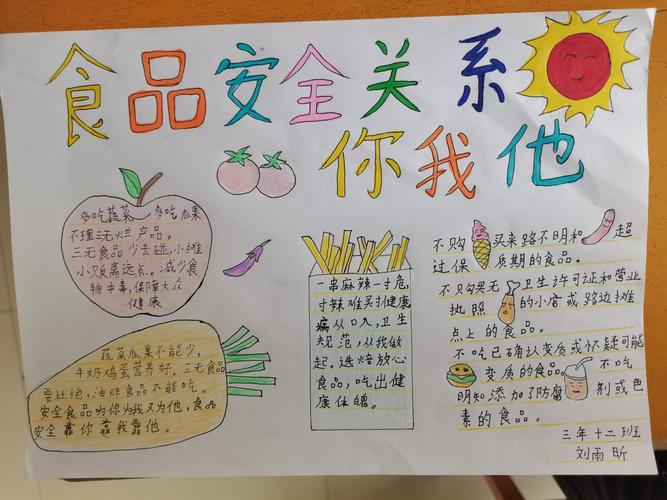 食品安全关系
你我他
多吃蔬菜 多吃瓜果
不理三无烂产品。
三无食品少去碰,小摊
小贩离远点。减少食
物中毒,保障大众
健康
蔬菜瓜果不能少,
牛奶鸡蛋营养好。三无食品
要杜绝,油炸食品不能吃。
安全食品为你为我又为他,食品
安全靠你靠我靠他。
一串麻辣一寸危,
寸辣难买打健康
病从口入,卫生
规范,从我做
起。选择放心
食品,吃出健
康体魄。
不购买来路不明和超
过保质期的食品。
不只购买无卫生许可证和营业
执照的小店或路边摊
点上的食品。
不吃已确认变质或怀疑可能
变质的食品。不吃
明知添加了防腐剂或色
素的食品。
三年十二班
刘雨昕